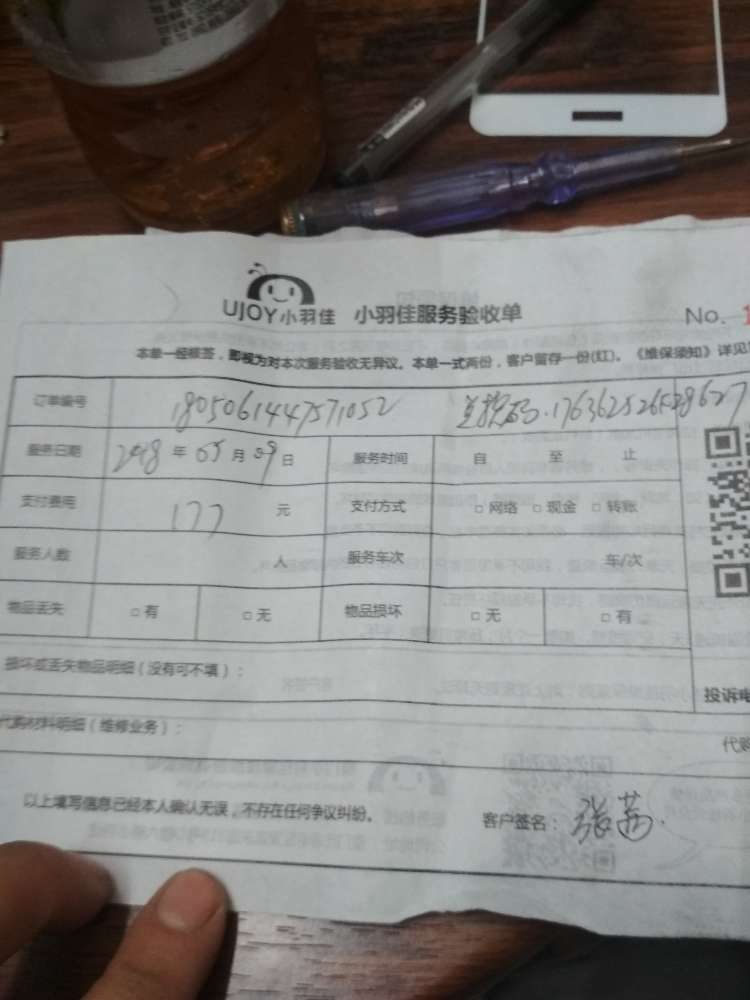 UJOY小羽佳 小羽佳服务验收单 No.
本单一经核签，即视为对本次服务验收无异议。本单一式两份，客户留存一份(红)。《维保须知》详见
订单编号 1805061447571052 兑换码·
服务日期 2018 年 05 月 09 日 服务时间 自 至 止
支付费用 177 元 支付方式 □网络 □现金 □转账
服务人数 人 服务车次 车/次
物品丢失 □有 □无 物品损坏 □无 □有
损坏或丢失物品明细（没有可不填）：
投诉电
代购材料明细（维修业务）：
代购
以上填写信息已经本人确认无误，不存在任何争议纠纷。 客户签名：张茜